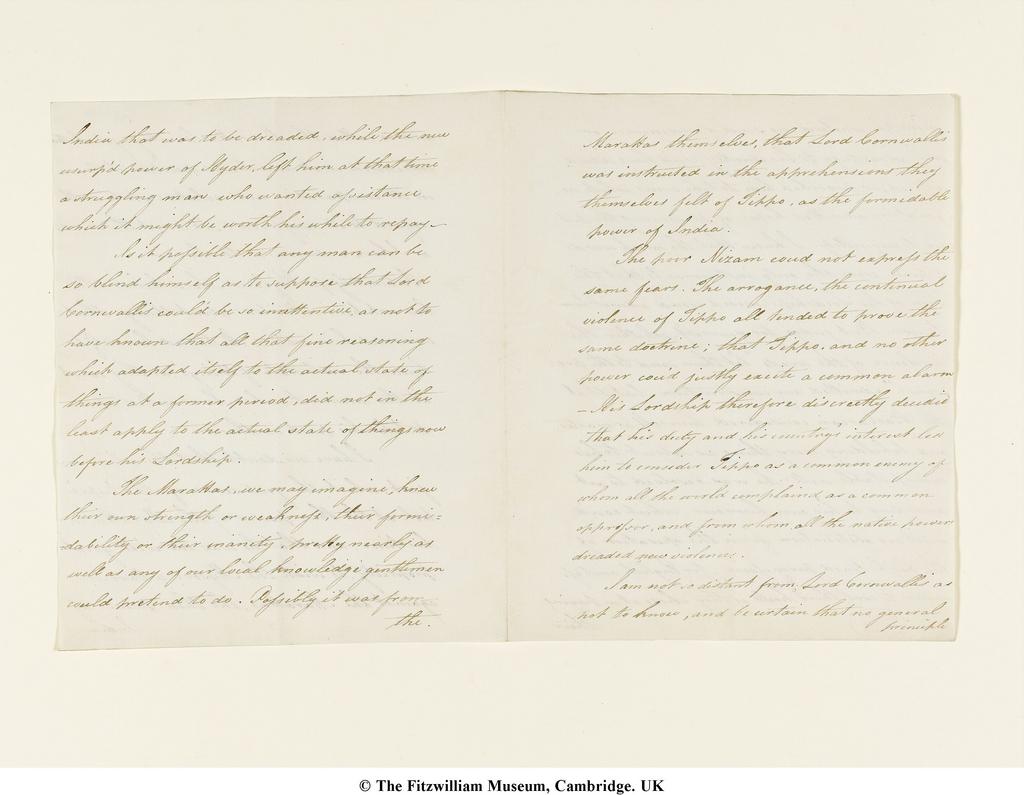 India that was to be dreaded, while the new
usurp'd power of Hyder, left him at that time
a struggling man who wanted assistance
which it might be worth his while to repay –
Is it possible that any man can be
so blind himself as to suppose that Lord
Cornwallis could be so inattentive, as not to
have known that all that fine reasoning
which adapted itself to the actual state of
things at a former period, did not in the
least apply to the actual state of things now
before his Lordship.
The Marattas, we may imagine, knew
their own strength or weakness, their formi=
=dability or their inanity, pretty nearly as
well as any of our local knowledge gentlemen
could pretend to do. Possibly it was from
the.
Marattas themselves, that Lord Cornwallis
was instructed in the apprehensions they
themselves felt of Tippo, as the formidable
power of India.
The poor Nizam coud not express the
same fears. The arrogance, the continual
violence of Tippo all tended to prove the
same doctrine; that Tippo, and no other
power cou'd justly excite a common alarm
– His Lordship therefore discreetly decided
that his duty and his country's interest led
him to consider Tippo as a common enemy of
whom all the world complaind as a common
oppressor, and from whom all the native powers
dreaded new violence.
I am not so distant from Lord Cornwallis as
not to know, and be certain that no general
principle
© The Fitzwilliam Museum, Cambridge. UK